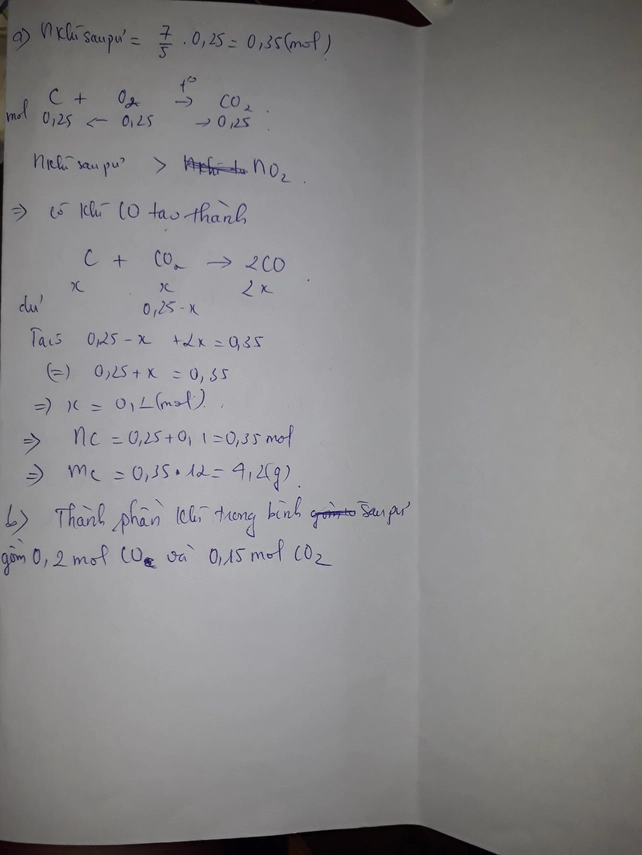 a) n khí sau pư = 7/5 . 0,25 = 0,35 (mol)
C + O2 t° → CO2
mol 0,25 ← 0,25 → 0,25
n khí sau pư > nO2.
=> có khí CO tạo thành
C + CO2 → 2CO
x x 2x
dư 0,25-x
Ta có 0,25 - x + 2x = 0,35
(=) 0,25 + x = 0,35
=> x = 0,1 (mol).
=> nC = 0,25 + 0,1 = 0,35 mol
=> mC = 0,35 . 12 = 4,2 (g).
b) Thành phần khí trong bình sau pư
gồm 0,2 mol CO và 0,15 mol CO2